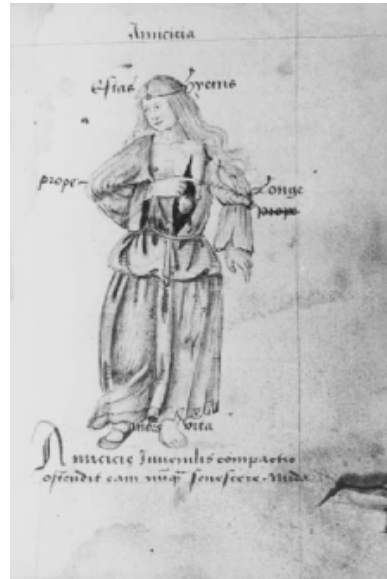 Amicicia
Estas hyems
prope
Longe
prope
mors vita
Amicicie Juvenilis comparatio
ostendit eam nunq̄ senescere. Nuda